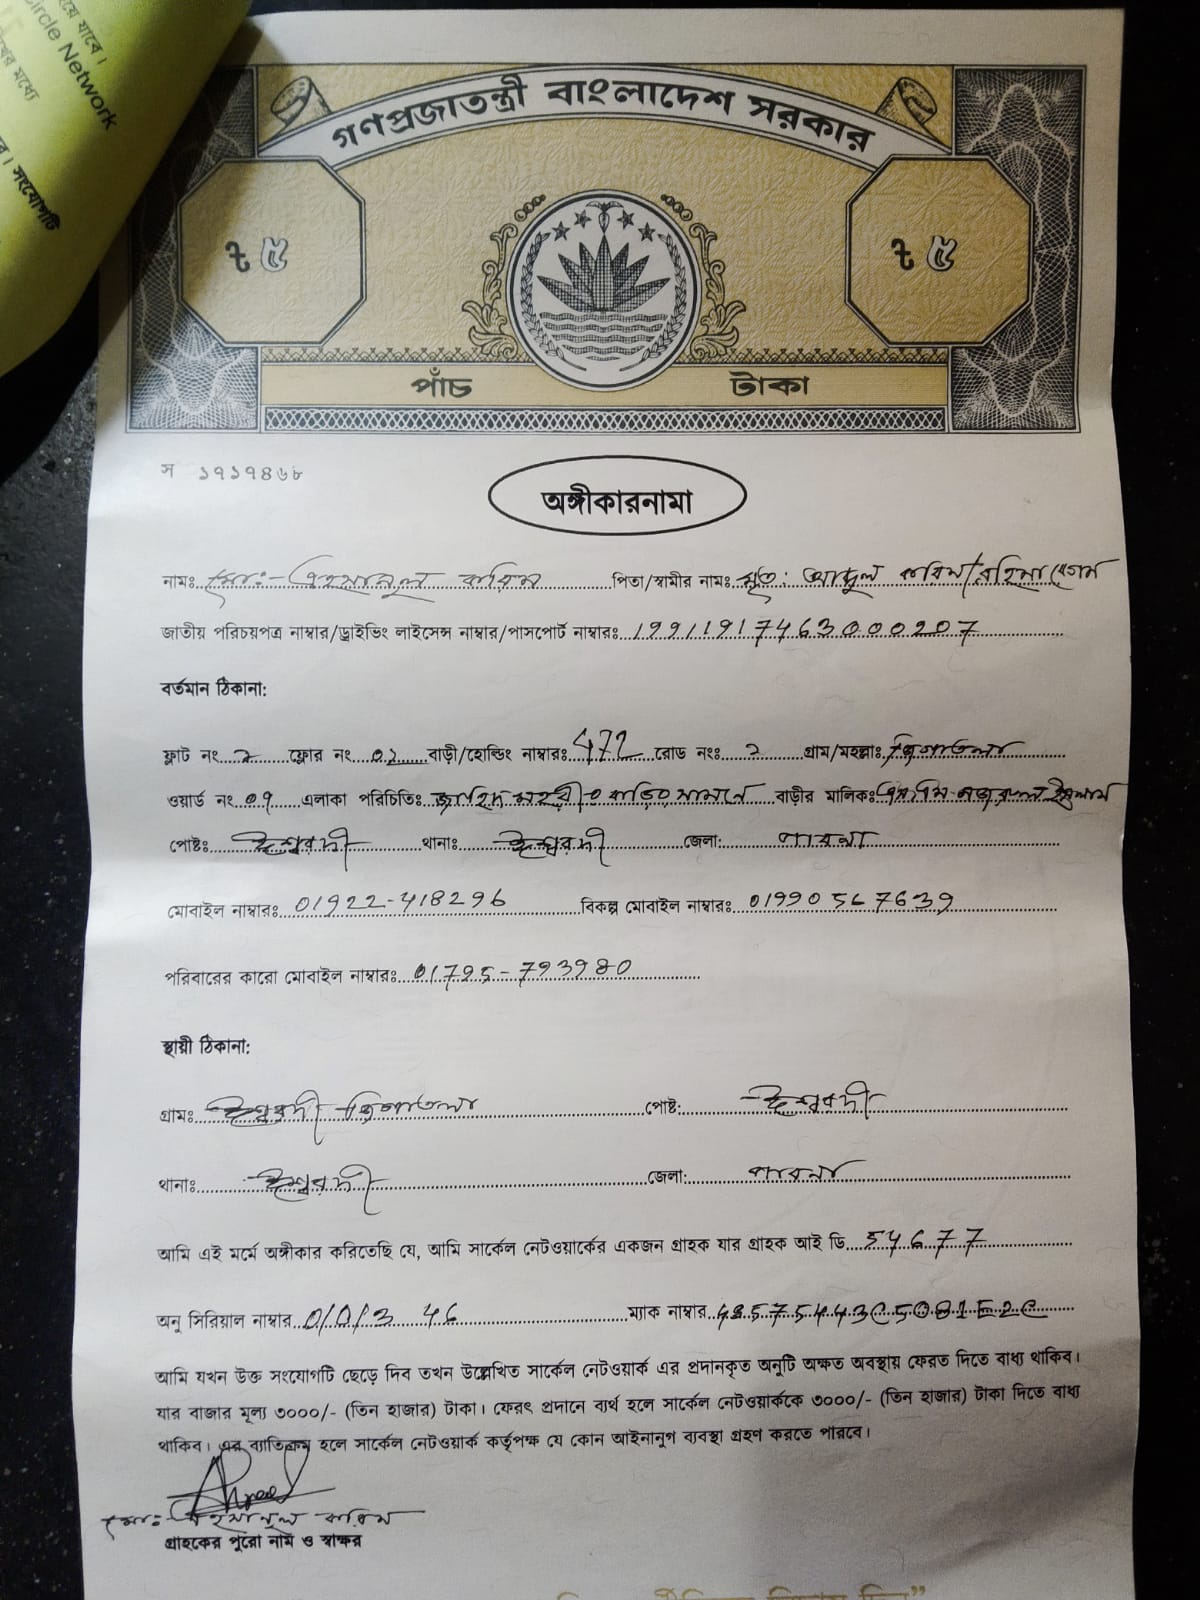 য়ে যাবে।
ircle Network
খের মধ্যে
র। সংযোগটি
গণপ্রজাতন্ত্রী বাংলাদেশ সরকার
৳ ৫
৳ ৫
পাঁচ টাকা
স ১৭১৭৪৬৮
অঙ্গীকারনামা
নামঃ মোঃ- এহসানুল করিম পিতা/স্বামীর নামঃ মৃত: আব্দুল করিম/রহিমা বেগম
জাতীয় পরিচয়পত্র নাম্বার/ড্রাইভিং লাইসেন্স নাম্বার/পাসপোর্ট নাম্বারঃ 19911917463000207
বর্তমান ঠিকানা:
ফ্লাট নং ২ ফ্লোর নং ০২ বাড়ী/হোল্ডিং নাম্বারঃ 472 রোড নংঃ ২ গ্রাম/মহল্লাঃ
ওয়ার্ড নং ০৭ এলাকা পরিচিতিঃ বাড়ির সামনে বাড়ীর মালিকঃ নজরুল ইসলাম
পোষ্টঃ ঈশ্বরদী থানাঃ ঈশ্বরদী জেলা: পাবনা
মোবাইল নাম্বারঃ 01922-418296 বিকল্প মোবাইল নাম্বারঃ 01990567639
পরিবারের কারো মোবাইল নাম্বারঃ 01795-793980
স্থায়ী ঠিকানা:
গ্রামঃ ঈশ্বরদী পোষ্ট: ঈশ্বরদী
থানাঃ ঈশ্বরদী জেলা: পাবনা
আমি এই মর্মে অঙ্গীকার করিতেছি যে, আমি সার্কেল নেটওয়ার্কের একজন গ্রাহক যার গ্রাহক আই ডি 54677
অনু সিরিয়াল নাম্বার 0/0/3 46 ম্যাক নাম্বার 485754443C5081E2C
আমি যখন উক্ত সংযোগটি ছেড়ে দিব তখন উল্লেখিত সার্কেল নেটওয়ার্ক এর প্রদানকৃত অনুটি অক্ষত অবস্থায় ফেরত দিতে বাধ্য থাকিব।
যার বাজার মূল্য ৩০০০/- (তিন হাজার) টাকা। ফেরৎ প্রদানে ব্যর্থ হলে সার্কেল নেটওয়ার্ককে ৩০০০/- (তিন হাজার) টাকা দিতে বাধ্য
থাকিব। এর ব্যতিক্রম হলে সার্কেল নেটওয়ার্ক কর্তৃপক্ষ যে কোন আইনানুগ ব্যবস্থা গ্রহণ করতে পারবে।
মোঃ- এহসানুল করিম
গ্রাহকের পুরো নাম ও স্বাক্ষর